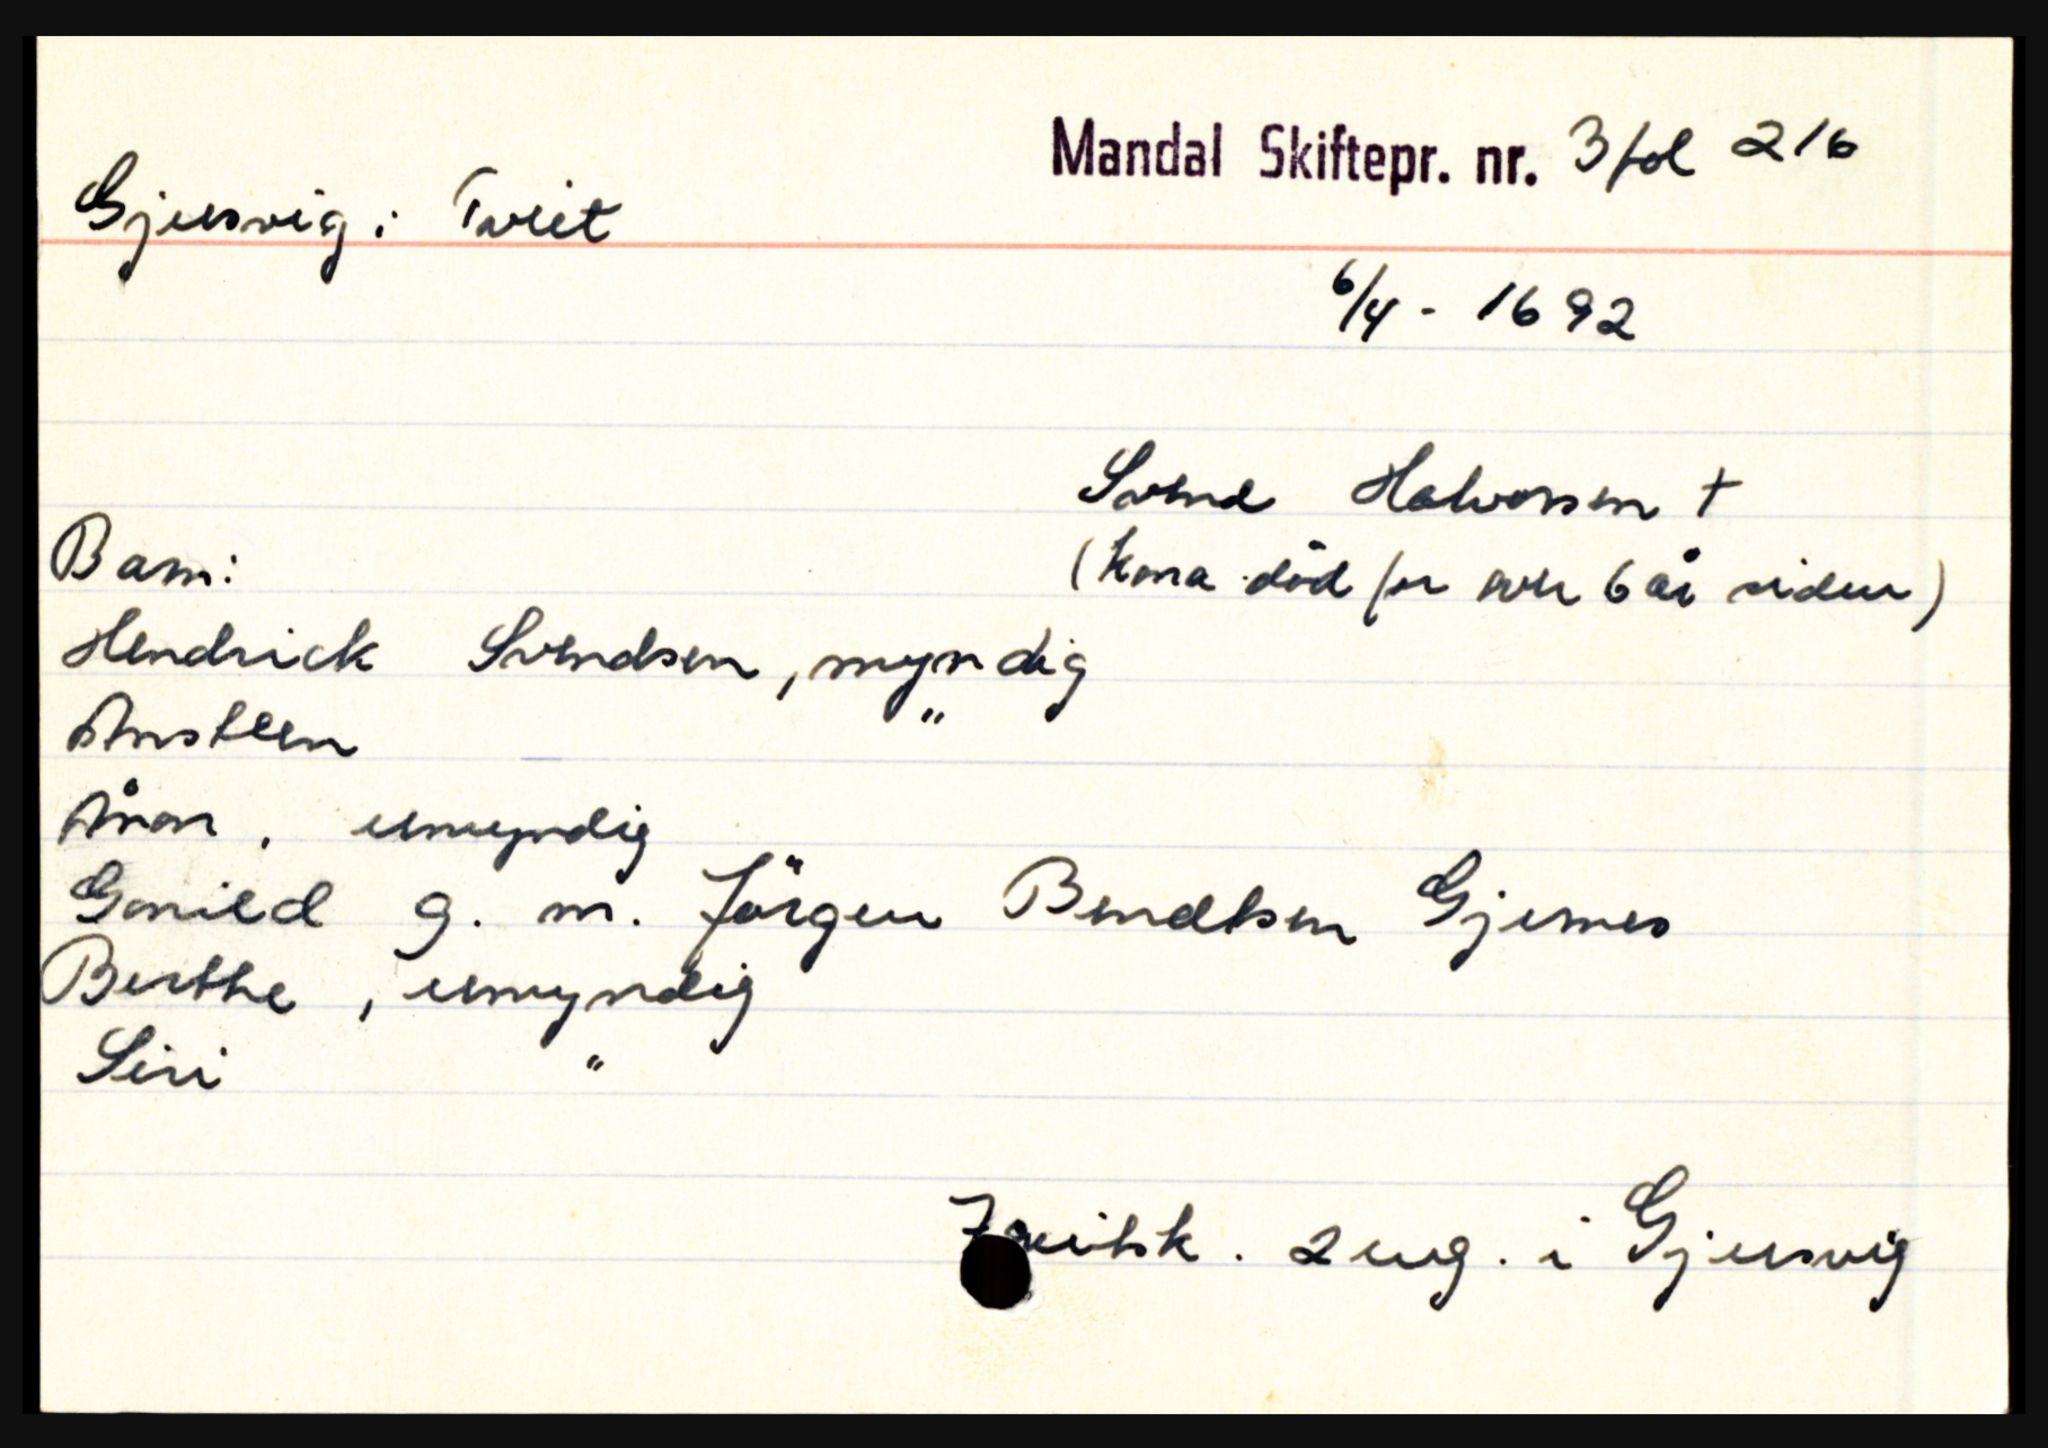 Mandal Skiftepr. nr. 3 fol 216
Gjersvig i Tveit
6/4 - 1692
Svend Halvorsen †
(kona död for over 6 år siden)
Barn:
Hendrick Svendsen, myndig
Ansteen "
Ånon, umyndig
Gonild g. m. Jörgen Bendtsen Gjernes
Berthe, umyndig
Siri "
2 eng. i Gjersvig